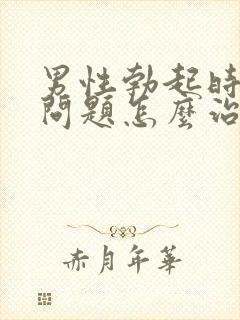 男性勃起時
問題怎麼治
赤月年華